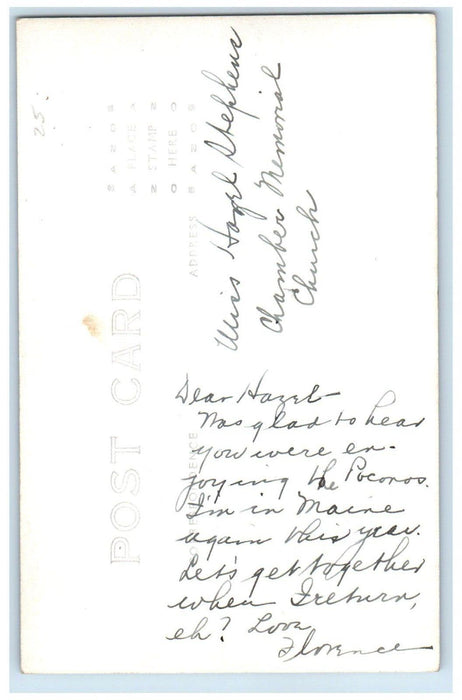 25.
PLACE
STAMP
HERE
POST CARD
ADDRESS
CORRESPONDENCE
Miss Hazel Stephens
Chamber Memorial
Church
Dear Hazel-
Was glad to hear
you were en-
joying the Poconos.
I'm in Maine
again this year.
Let's get together
when I return,
eh? Love,
Florence